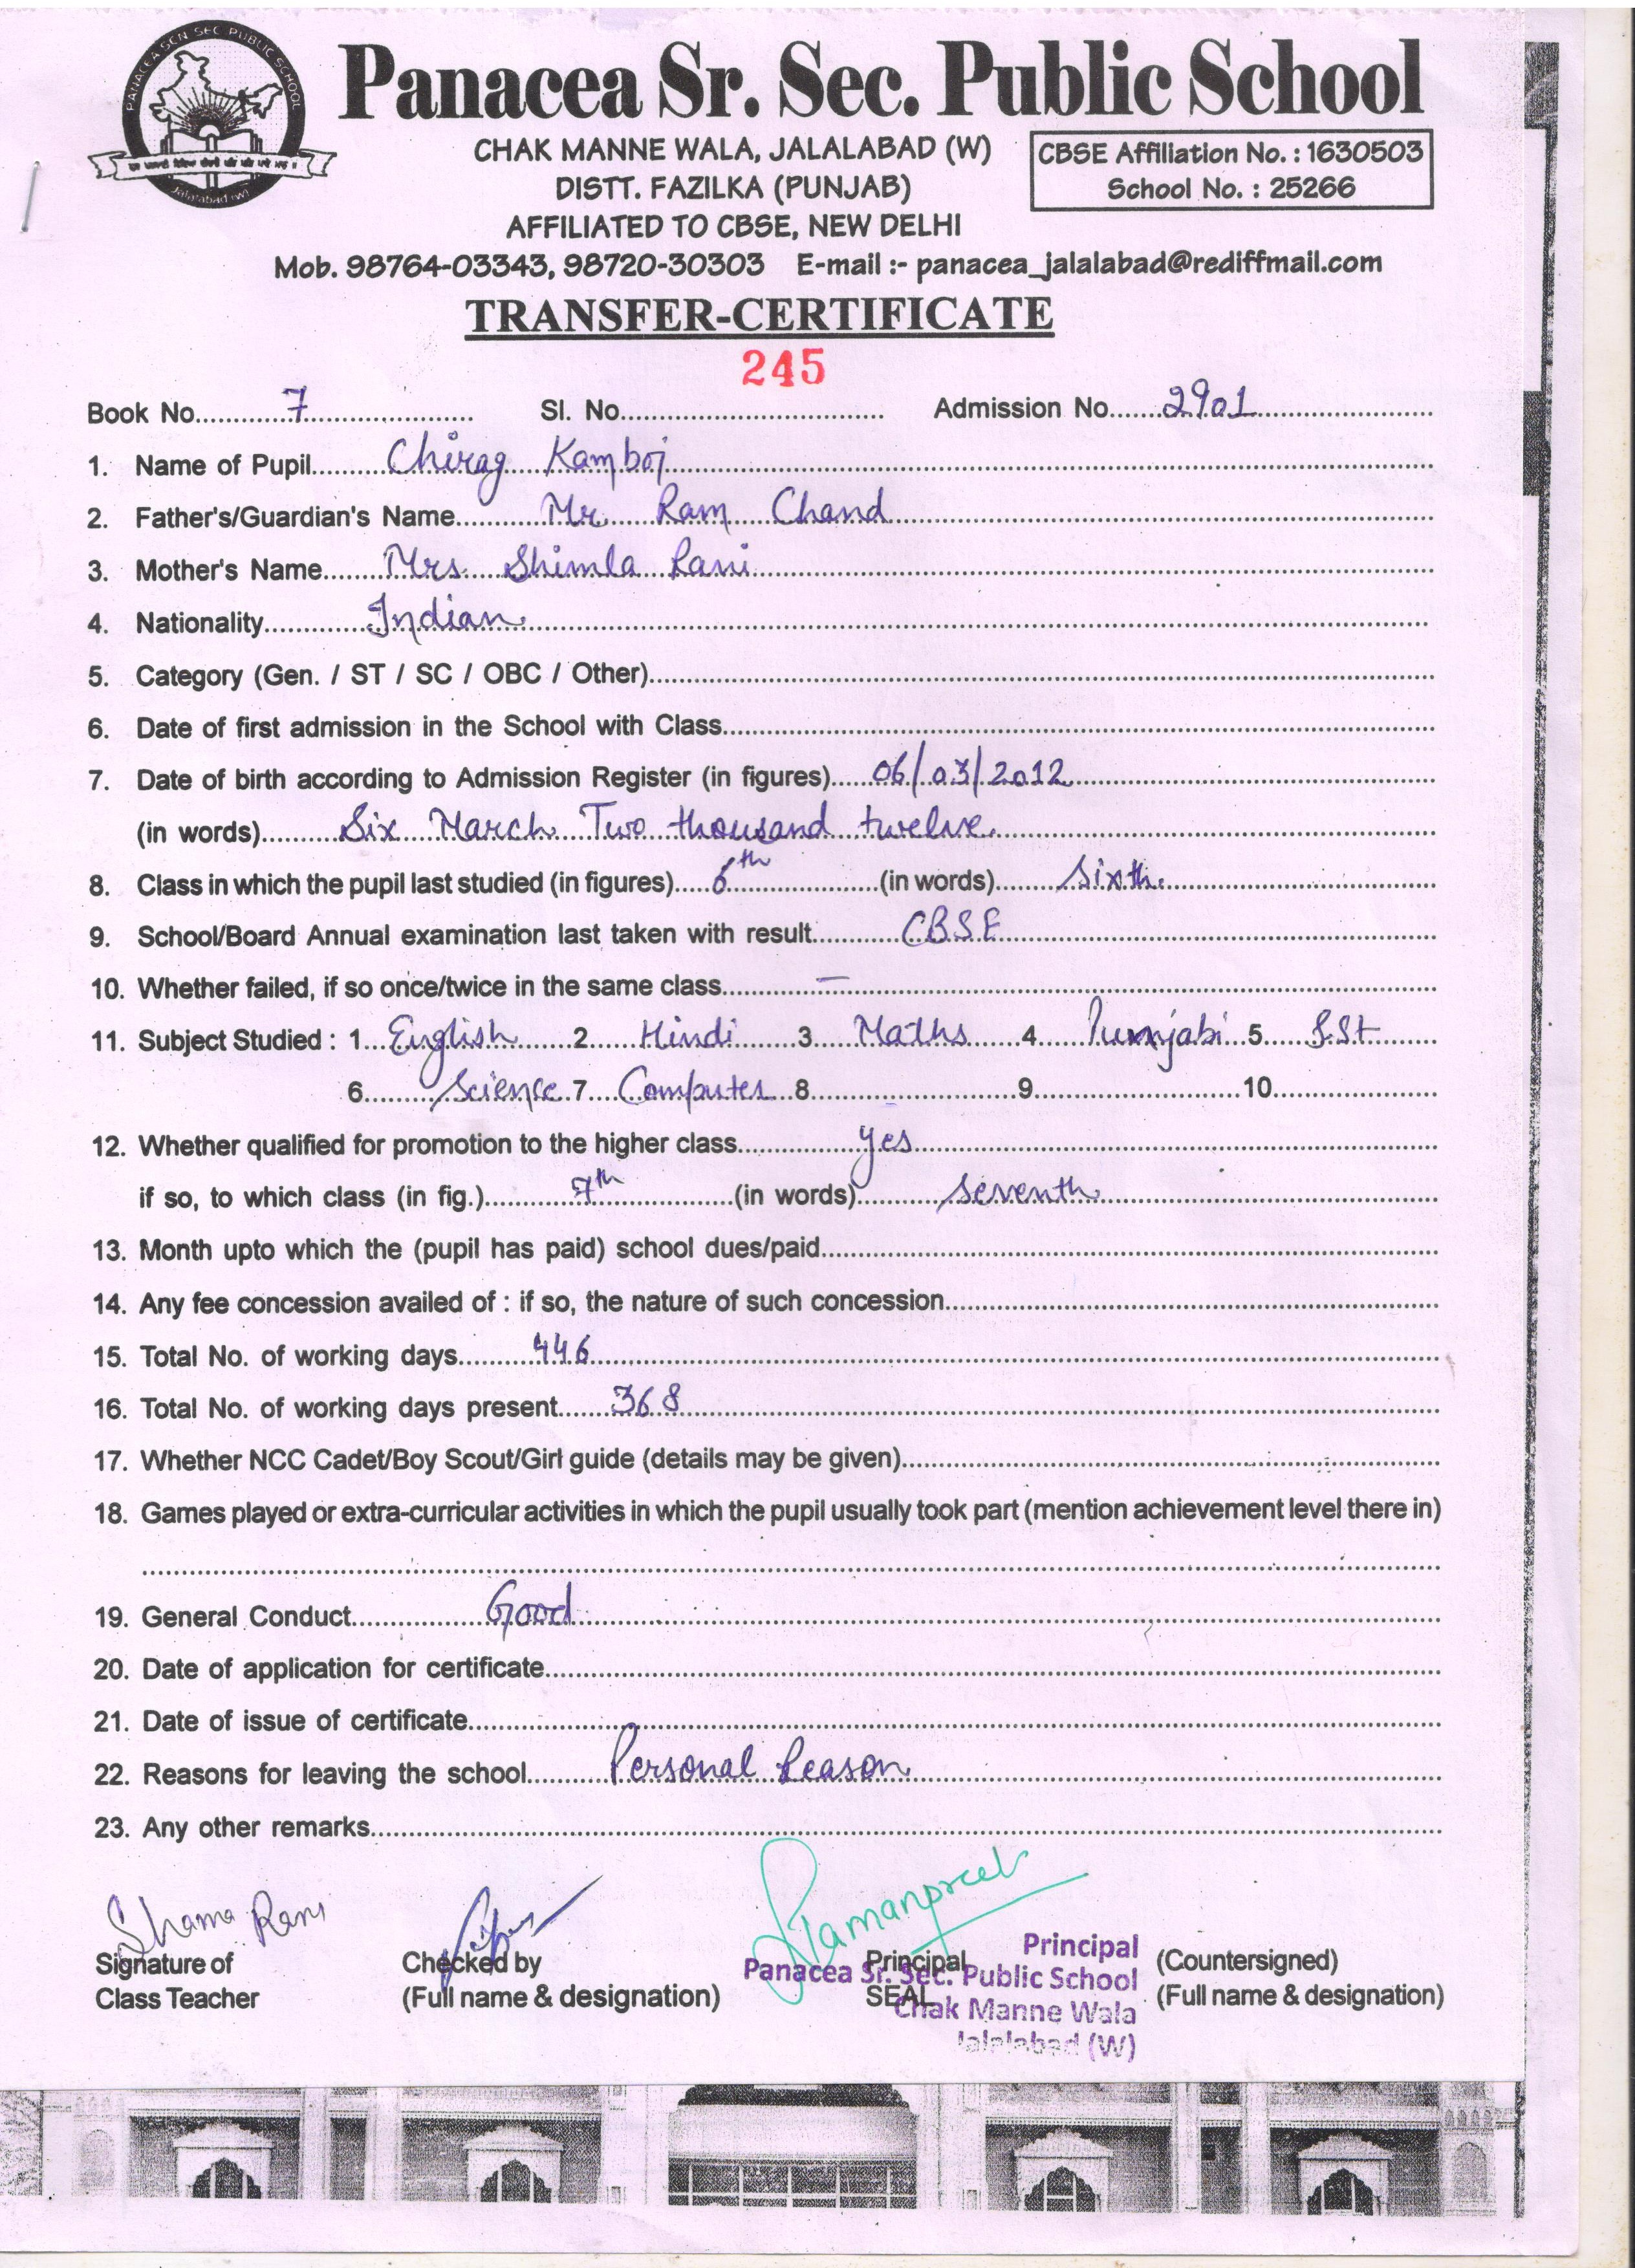 PANACEA SCN SEC PUBLIC SCHOOL
Jalalabad (W)
Panacea Sr. Sec. Public School
CHAK MANNE WALA, JALALABAD (W)
DISTT. FAZILKA (PUNJAB)
AFFILIATED TO CBSE, NEW DELHI
CBSE Affiliation No. : 1630503
School No. : 25266
Mob. 98764-03343, 98720-30303 E-mail :- panacea_jalalabad@rediffmail.com
TRANSFER-CERTIFICATE
245
Book No. 7 Sl. No. Admission No. 2901
1. Name of Pupil Chirag Kamboj
2. Father's/Guardian's Name Mr. Ram Chand
3. Mother's Name Mrs. Shimla Rani
4. Nationality Indian
5. Category (Gen. / ST / SC / OBC / Other)
6. Date of first admission in the School with Class
7. Date of birth according to Admission Register (in figures) 06/03/2012
(in words) Six March Two thousand twelve.
8. Class in which the pupil last studied (in figures) 6th (in words) Sixth.
9. School/Board Annual examination last taken with result CBSE
10. Whether failed, if so once/twice in the same class —
11. Subject Studied : 1 English 2 Hindi 3 Maths 4 Punjabi 5. S.St
6. Science 7 Computer 8 9 10
12. Whether qualified for promotion to the higher class yes
if so, to which class (in fig.) 7th (in words) seventh
13. Month upto which the (pupil has paid) school dues/paid
14. Any fee concession availed of : if so, the nature of such concession
15. Total No. of working days 446
16. Total No. of working days present 368
17. Whether NCC Cadet/Boy Scout/Girl guide (details may be given)
18. Games played or extra-curricular activities in which the pupil usually took part (mention achievement level there in)
19. General Conduct Good
20. Date of application for certificate
21. Date of issue of certificate
22. Reasons for leaving the school Personal Reason
23. Any other remarks
Shama Rani
Signature of
Class Teacher
Checked by
(Full name & designation)
Principal
SEAL
Principal
Panacea Sr. Sec. Public School
Chak Manne Wala
Jalalabad (W)
(Countersigned)
(Full name & designation)